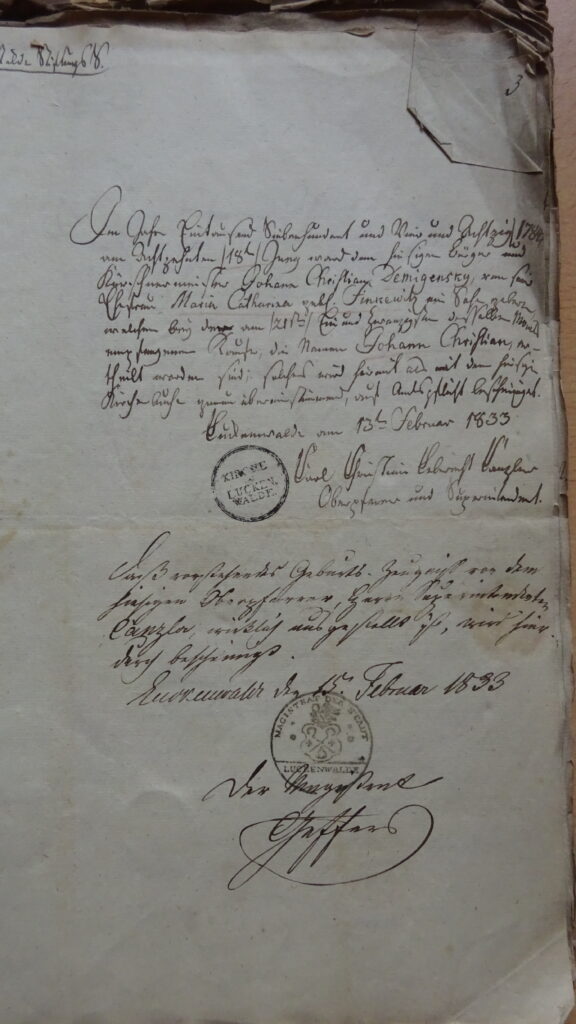 Stiftungs S.
3
Im Jahre Eintausend Siebenhundert und Vier und Achtzig /1784/
am Achtzehnten /18ten/ Juny ward dem hiesigen Bürger und
Kürschnermeister Johann Christian Demigensky, von seiner
Ehefrau Maria Catharina geb. Finkewitz ein Sohn geboren
welchem bey der am /21ten/ Ein und zwanzigsten desselben Monats
empfangenen Taufe, die Namen Johann Christian, er-
theilt worden sind; solches wird hiermit als mit dem hiesigen
Kirchenbuche genau übereinstimmend, auf Amtspflicht bescheiniget.
Luckenwalde am 13ten Februar 1833
KIRCHE
LUCKEN
WALDE.
Carl Christian Lebrecht Canzler
Oberpfarrer und Superintendent.
Daß vorstehendes Geburts-Zeugniß von dem
hiesigen Oberpfarrer, Herrn Superintendenten
Canzler, wirklich ausgestellt ist, wird hier-
durch bescheinigt.
Luckenwalde den 15. Februar 1833
MAGISTRAT DER STADT
LUCKENWALDE
Der Magistrat